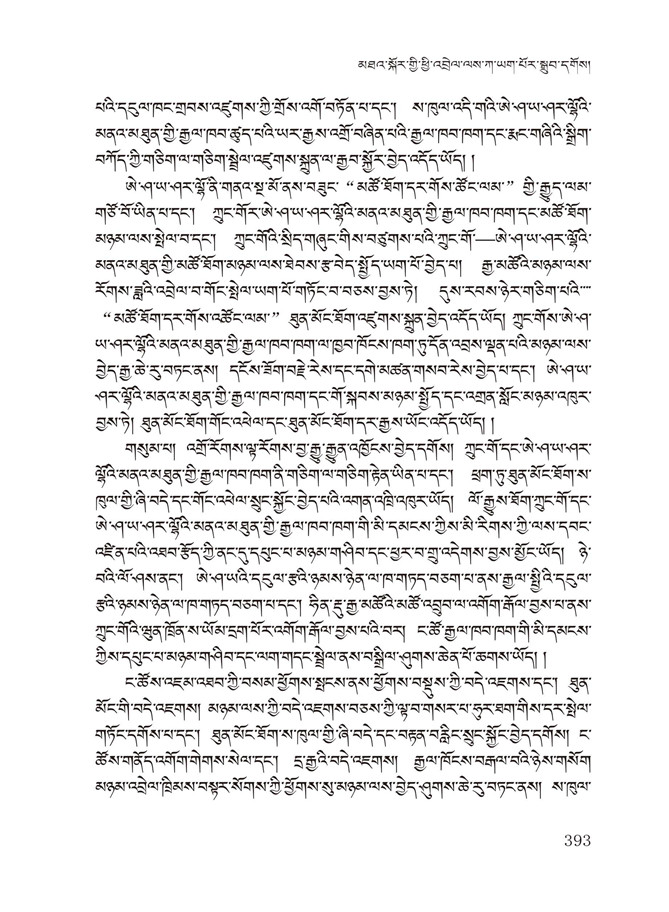 མཐའ་སྐོར་གྱི་ཕྱི་འབྲེལ་ལས་ཀ་ཡག་པོར་སྒྲུབ་དགོས།
པའི་དངུལ་ཁང་གྲབས་འཛུགས་ཀྱི་གྲོས་འགོ་བཏོན་པ་དང་། ས་ཁུལ་འདི་གའི་ཨེ་ཤ་ཡ་ཤར་ལྷོའི་
མནའ་མཐུན་གྱི་རྒྱལ་ཁབ་ཚུད་པའི་ཡར་རྒྱས་འགྲོ་བཞིན་པའི་རྒྱལ་ཁབ་ཁག་དང་རྨང་གཞིའི་སྒྲིག་
བཀོད་ཀྱི་གཅིག་ལ་གཅིག་སྦྲེལ་འཛུགས་སྐྲུན་ལ་རྒྱབ་སྐྱོར་བྱེད་འདོད་ཡོད། །
ཨེ་ཤ་ཡ་ཤར་ལྷོ་ནི་གནའ་སྔ་མོ་ནས་བཟུང་ “མཚོ་ཐོག་དར་གོས་ཚོང་ལམ་” གྱི་རྒྱུད་ལམ་
གཙོ་བོ་ཡིན་པ་དང་། ཀྲུང་གོར་ཨེ་ཤ་ཡ་ཤར་ལྷོའི་མནའ་མཐུན་གྱི་རྒྱལ་ཁབ་ཁག་དང་མཚོ་ཐོག་
མཉམ་ལས་སྤེལ་བ་དང་། ཀྲུང་གོའི་སྲིད་གཞུང་གིས་བཙུགས་པའི་ཀྲུང་གོ་—ཨེ་ཤ་ཡ་ཤར་ལྷོའི་
མནའ་མཐུན་གྱི་མཚོ་ཐོག་མཉམ་ལས་ཐེབས་རྩ་བེད་སྤྱོད་ཡག་པོ་བྱེད་པ། རྒྱ་མཚོའི་མཉམ་ལས་
རོགས་ཟླའི་འབྲེལ་བ་གོང་སྤེལ་ཡག་པོ་གཏོང་བ་བཅས་བྱས་ཏེ། དུས་རབས་ཉེར་གཅིག་པའི་
“མཚོ་ཐོག་དར་གོས་འཚོང་ལམ་” ཐུན་མོང་ཐོག་འཛུགས་སྐྲུན་བྱེད་འདོད་ཡོད། ཀྲུང་གོས་ཨེ་ཤ་
ཡ་ཤར་ལྷོའི་མནའ་མཐུན་གྱི་རྒྱལ་ཁབ་ཁག་ལ་ཁྱབ་ཁོངས་ཁག་ཏུ་དོན་འབྲས་ལྡན་པའི་མཉམ་ལས་
བྱེད་རྒྱ་ཆེ་རུ་བཏང་ནས། དངོས་ཟོག་བརྗེ་རེས་དང་དགེ་མཚན་གསབ་རེས་བྱེད་པ་དང་། ཨེ་ཤ་ཡ་
ཤར་ལྷོའི་མནའ་མཐུན་གྱི་རྒྱལ་ཁབ་ཁག་དང་གོ་སྐབས་མཉམ་སྤྱོད་དང་འགྲན་སློང་མཉམ་འཁུར་
བྱས་ཏེ། ཐུན་མོང་ཐོག་གོང་འཕེལ་དང་ཐུན་མོང་ཐོག་དར་རྒྱས་ཡོང་འདོད་ཡོད། །
གསུམ་པ། འགྲོ་རོགས་ལྟ་རོགས་བྱ་རྒྱུ་རྒྱུན་འཁྱོངས་བྱེད་དགོས། ཀྲུང་གོ་དང་ཨེ་ཤ་ཡ་ཤར་
ལྷོའི་མནའ་མཐུན་གྱི་རྒྱལ་ཁབ་ཁག་ནི་གཅིག་ལ་གཅིག་རྟེན་ཡིན་པ་དང་། ཕྲག་ཏུ་ཐུན་མོང་ཐོག་ས་
ཁུལ་གྱི་ཞི་བདེ་དང་གོང་འཕེལ་སྲུང་སྐྱོང་བྱེད་པའི་འགན་འཁྲི་འཁུར་ཡོད། ལོ་རྒྱུས་ཐོག་ཀྲུང་གོ་དང་
ཨེ་ཤ་ཡ་ཤར་ལྷོའི་མནའ་མཐུན་གྱི་རྒྱལ་ཁབ་ཁག་གི་མི་དམངས་ཀྱིས་མི་རིགས་ཀྱི་ལས་དབང་
འཛིན་པའི་འཐབ་རྩོད་ཀྱི་ནང་དུ་དཔུང་པ་མཉམ་གཤིབ་དང་ཕྱར་བ་གྲུ་འདེགས་བྱས་མྱོང་ཡོད། ཉེ་
བའི་ལོ་ཤས་ནང་། ཨེ་ཤ་ཡའི་དངུལ་རྩའི་ཉམས་ཉེན་ལ་ཁ་གཏད་བཅག་པ་ནས་རྒྱལ་སྤྱིའི་དངུལ་
རྩའི་ཉམས་ཉེན་ལ་ཁ་གཏད་བཅག་པ་དང་། ཧིན་རྡུ་རྒྱ་མཚོའི་མཚོ་འབྲུབ་ལ་འགོག་རྒོལ་བྱས་པ་ནས་
ཀྲུང་གོའི་ཝུན་ཁྲོན་ས་ཡོམ་དྲག་པོར་འགོག་རྒོལ་བྱས་པའི་བར། ང་ཚོ་རྒྱལ་ཁབ་ཁག་གི་མི་དམངས་
ཀྱིས་དཔུང་པ་མཉམ་གཤིབ་དང་ལག་གདང་སྦྲེལ་ནས་བསྒྲིལ་ཤུགས་ཆེན་པོ་ཆགས་ཡོད། །
ང་ཚོས་འཇམ་འཐབ་ཀྱི་བསམ་ཕྱོགས་སྤངས་ནས་ཕྱོགས་བསྡུས་ཀྱི་བདེ་འཇགས་དང་། ཐུན་
མོང་གི་བདེ་འཇགས། མཉམ་ལས་ཀྱི་བདེ་འཇགས་བཅས་ཀྱི་ལྟ་བ་གསར་པ་ཧུར་ཐག་གིས་དར་སྤེལ་
གཏོང་དགོས་པ་དང་། ཐུན་མོང་ཐོག་ས་ཁུལ་གྱི་ཞི་བདེ་དང་བརྟན་བརླིང་སྲུང་སྐྱོང་བྱེད་དགོས། ང་
ཚོས་གནོད་འགོག་གེགས་སེལ་དང་། དྲ་རྒྱའི་བདེ་འཇགས། རྒྱལ་ཁོངས་བརྒལ་བའི་ཉེས་གསོག
མཉམ་འབྲེལ་ཁྲིམས་བསྟར་སོགས་ཀྱི་ཕྱོགས་སུ་མཉམ་ལས་བྱེད་ཤུགས་ཆེ་རུ་བཏང་ནས། ས་ཁུལ་
393